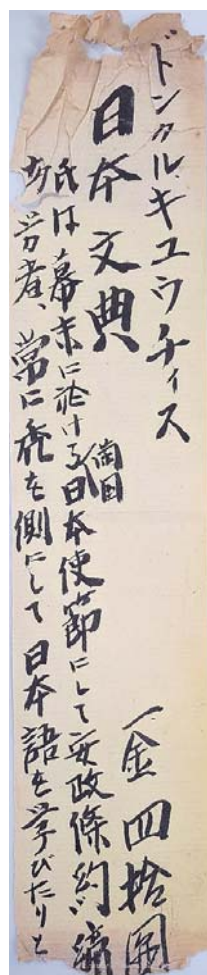 ドンクルキユウチイス
日本文典
一金四拾圓
氏は幕末に於ける蘭国日本使節にして安政條約締
労者、常に を側にして日本語を学びたりと